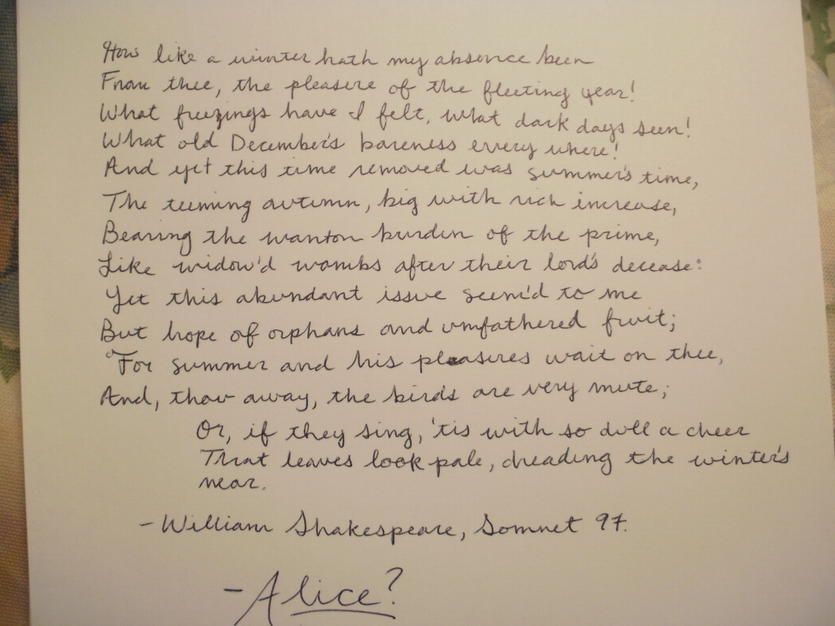 How like a winter hath my absence been
From thee, the pleasure of the fleeting year!
What freezings have I felt, what dark days seen!
What old December's bareness every where!
And yet this time removed was summer's time,
The teeming autumn, big with rich increase,
Bearing the wanton burden of the prime,
Like widow'd wombs after their lord's decease:
Yet this abundant issue seem'd to me
But hope of orphans and unfathered fruit;
For summer and his pleasures wait on thee,
And, thou away, the birds are very mute;
Or, if they sing, 'tis with so dull a cheer
That leaves look pale, dreading the winter's
near.
- William Shakespeare, Sonnet 97.
- Alice?